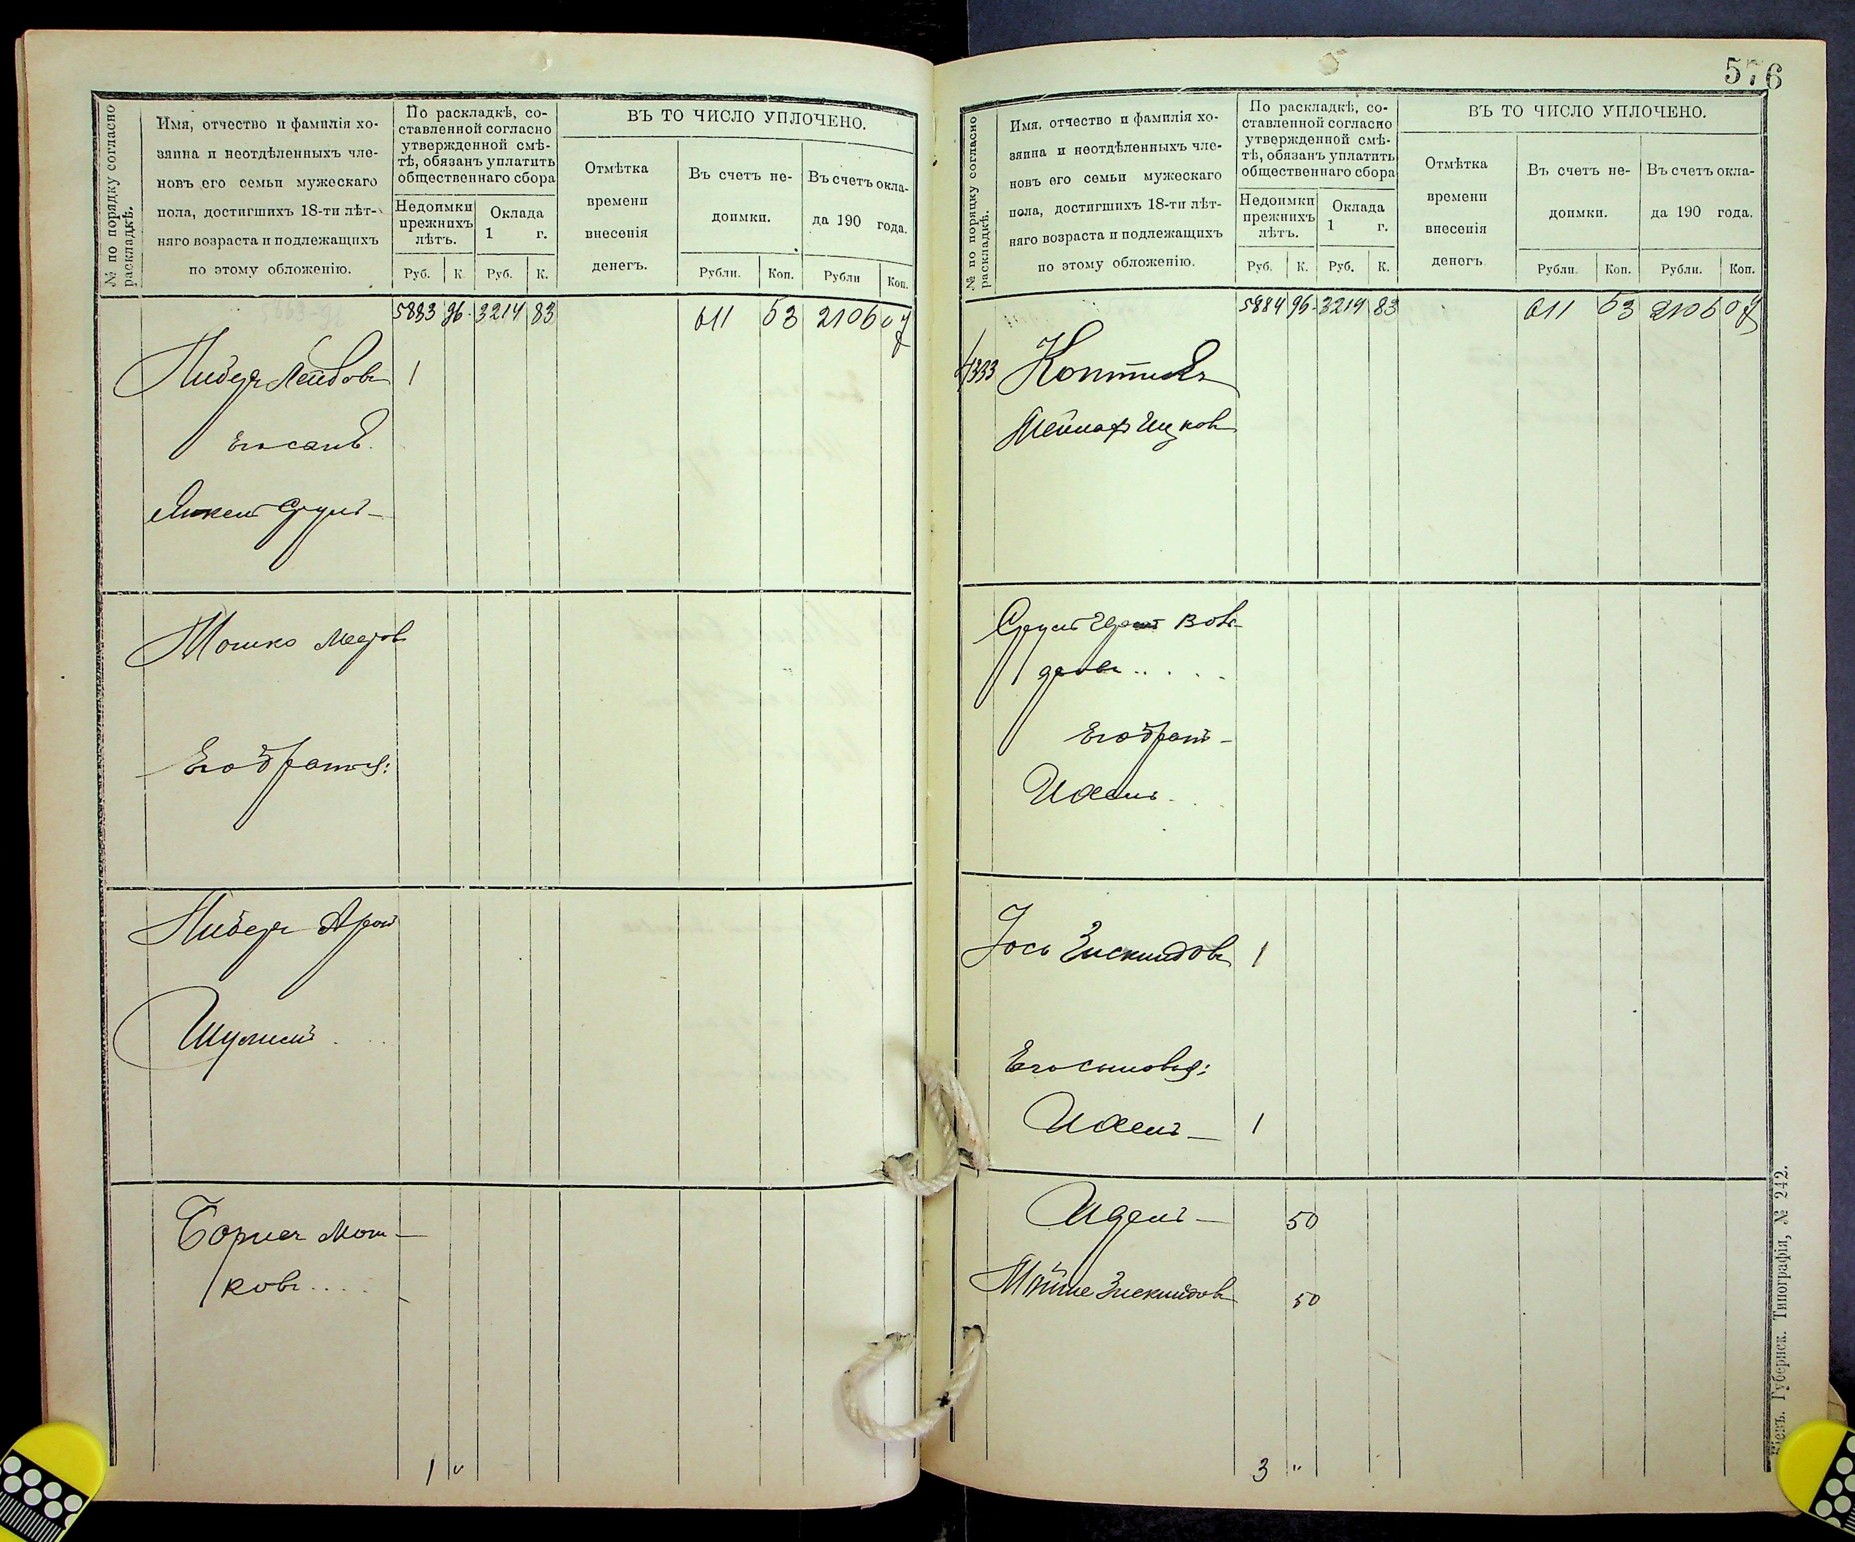 № по порядку согласно раскладкѣ.
Имя, отчество и фамилія хо-
зяина и неотдѣленныхъ чле-
новъ его семьи мужескаго
пола, достигшихъ 18-ти лѣт-
няго возраста и подлежащихъ
по этому обложенію.
По раскладкѣ, со-
ставленной согласно
утвержденной смѣ-
тѣ, обязанъ уплатить
общественнаго сбора
Недоимки
прежнихъ
лѣтъ.
Оклада
1 г.
Руб. К. Руб. К.
ВЪ ТО ЧИСЛО УПЛОЧЕНО.
Отмѣтка
времени
внесенія
денегъ.
Въ счетъ не-
доимки.
Въ счетъ окла-
да 190 года.
Рубли. Коп. Рубли Коп.
5883 96 3214 83 611 53 2106 07
Либеръ Лейбовъ 1
Его сынъ
Янкель Сруль
Мошко Мееров
Его братья:
Либеръ Арон
Шулимъ
Борисъ Мош-
ковъ....
1 "
576
№ по порядку согласно раскладкѣ.
Имя, отчество и фамилія хо-
зяина и неотдѣленныхъ чле-
новъ его семьи мужескаго
пола, достигшихъ 18-ти лѣт-
няго возраста и подлежащихъ
по этому обложенію.
По раскладкѣ, со-
ставленной согласно
утвержденной смѣ-
тѣ, обязанъ уплатить
общественнаго сбора
Недоимки
прежнихъ
лѣтъ.
Оклада
1 г.
Руб. К. Руб. К.
ВЪ ТО ЧИСЛО УПЛОЧЕНО.
Отмѣтка
времени
внесенія
денегъ.
Въ счетъ не-
доимки.
Въ счетъ окла-
да 190 года.
Рубли. Коп. Рубли. Коп.
5884 96 3214 83 611 53 2106 07
1333
Ицков
Сруль
Его братъ
Иосель
Іось Зискиндовъ 1
Его сыновья:
Иосель 1
Идель 50
Мойше Зискиндовъ 50
3 "
Кіевъ. Губернск. Типографія, № 242.